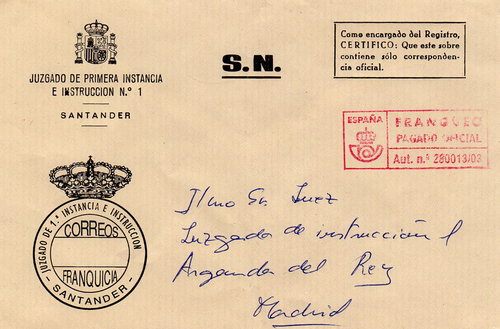 JUZGADO DE PRIMERA INSTANCIA
E INSTRUCCION N.º 1
SANTANDER
S.N.
Como encargado del Registro,
CERTIFICO: Que este sobre
contiene sólo corresponden-
cia oficial.
ESPAÑA
FRANQUEO
PAGADO OFICIAL
Aut. n.º 280013/03
JUZGADO DE 1.ª INSTANCIA E INSTRUCCION
CORREOS
FRANQUICIA
- SANTANDER -
Ilmo Sr Juez
Juzgado de instrucción 1
Arganda del Rey
Madrid